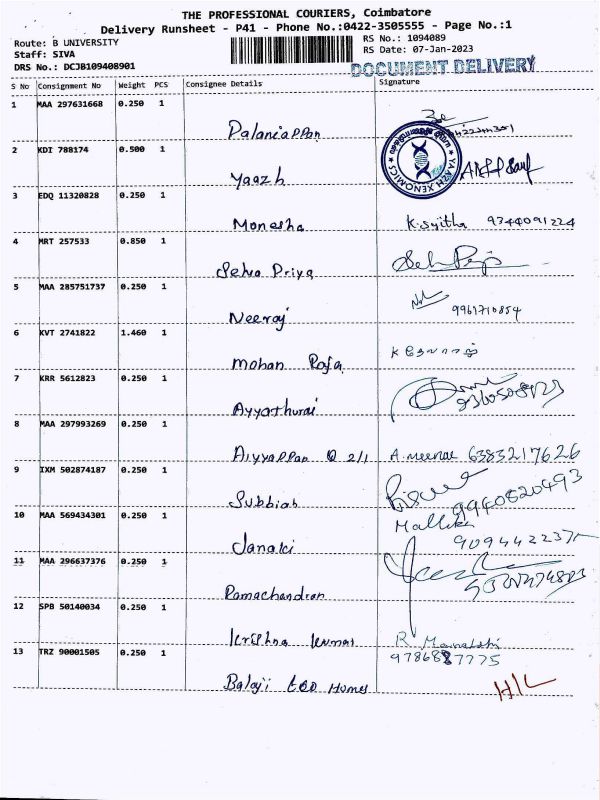 THE PROFESSIONAL COURIERS, Coimbatore
Delivery Runsheet - P41 - Phone No.:0422-3505555 - Page No.:1
Route: B UNIVERSITY
Staff: SIVA
DRS No.: DCJB109408901
RS No.: 1094089
RS Date: 07-Jan-2023
DOCUMENT DELIVERY
S No Consignment No Weight PCS Consignee Details Signature
1 MAA 297631668 0.250 1
Palaniappan
2 KDI 788174 0.500 1
Yaazh
YAAZH XENOMICS
3 EDQ 11320828 0.250 1
Monesha K.Sujitha 9344091224
4 MRT 257533 0.850 1
Selva Priya
5 MAA 285751737 0.250 1
Neeraj 9961710854
6 KVT 2741822 1.460 1
Mohan Raja
7 KRR 5612823 0.250 1
Ayyathurai
8 MAA 297993269 0.250 1
Aiyyappan @ 2/1 A. meenal 6383217626
9 IXM 502874187 0.250 1
Subbiah 9940820493
10 MAA 569434301 0.250 1
Mallika
Janaki
11 MAA 296637376 0.250 1
Ramachandran
12 SPB 50140034 0.250 1
Krishna Kumar
13 TRZ 90001505 0.250 1
Balaji Homes